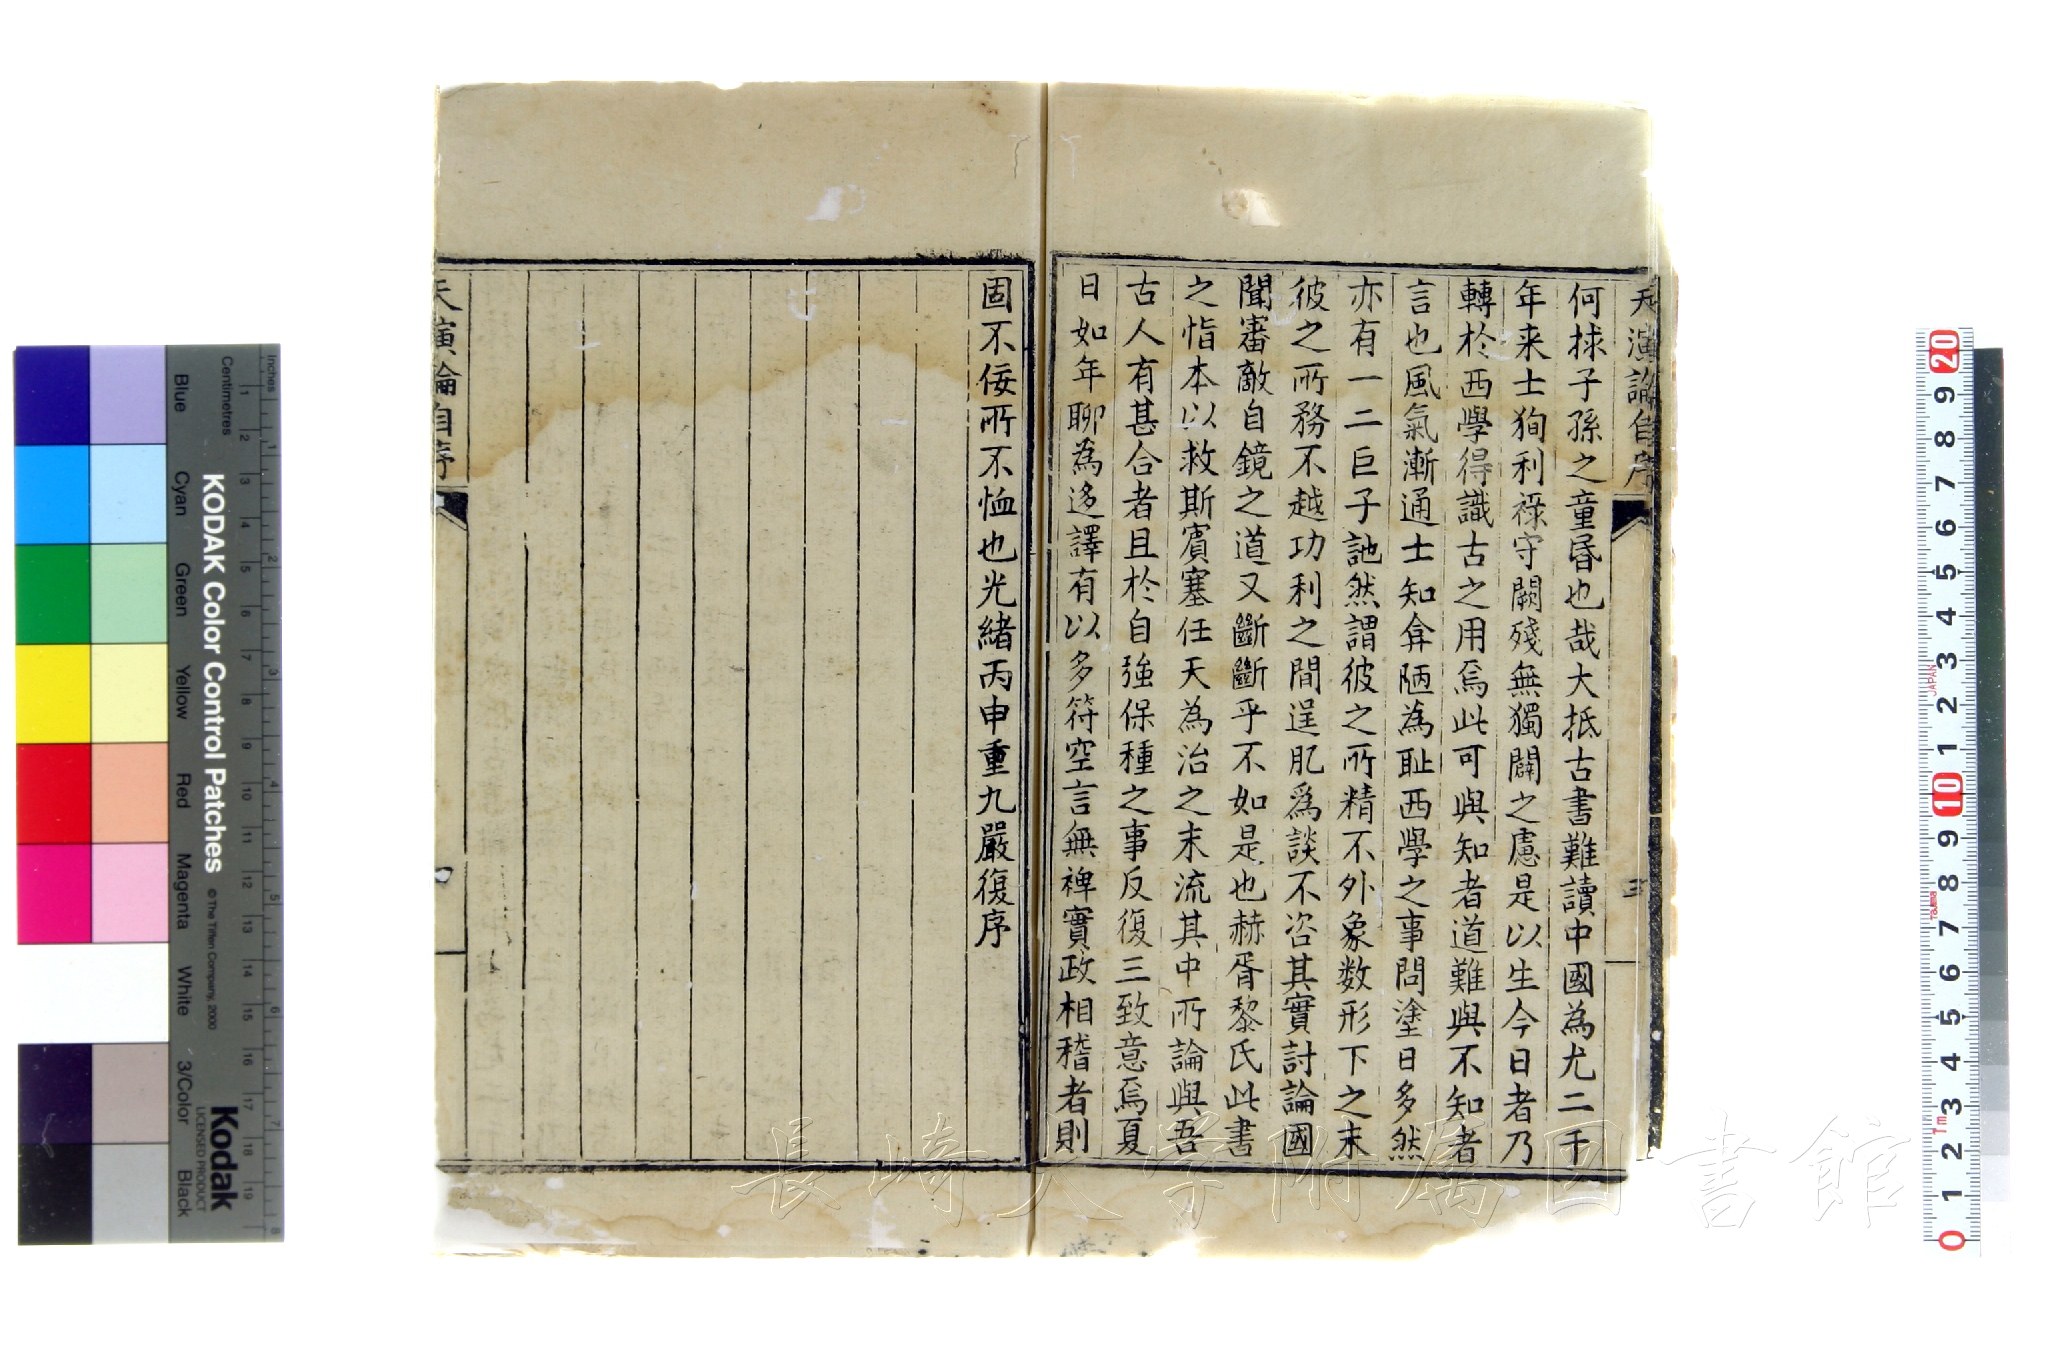 天演論自序
何捄子孫之童昬也哉大抵古書難讀中國為尤二千
年来士狥利祿守闕殘無獨闢之慮是以生今日者乃
轉於西學得識古之用焉此可與知者道難與不知者
言也風氣漸通士知弇陋為恥西學之事問塗日多然
亦有一二巨子訑然謂彼之所精不外象数形下之末
彼之所務不越功利之間逞肊為談不咨其實討論國
聞審敵自鏡之道又斷斷乎不如是也赫胥黎氏此書
之恉本以救斯賓塞任天為治之末流其中所論與吾
古人有甚合者且於自強保種之事反復三致意焉夏
日如年聊為迻譯有以多符空言無裨實政相稽者則
固不佞所不恤也光緒丙申重九嚴復序
天演論自序
三
長崎大学附属図書館
KODAK Color Control Patches
© The Tiffen Company, 2000
Kodak
LICENSED PRODUCT
Inches
Centimetres
Blue
Cyan
Green
Yellow
Red
Magenta
White
3/Color
Black
1 2 3 4 5 6 7 8
1 2 3 4 5 6 7 8 9 10 11 12 13 14 15 16 17 18 19
0 1 2 3 4 5 6 7 8 9 10 1 2 3 4 5 6 7 8 9 20
JAPAN